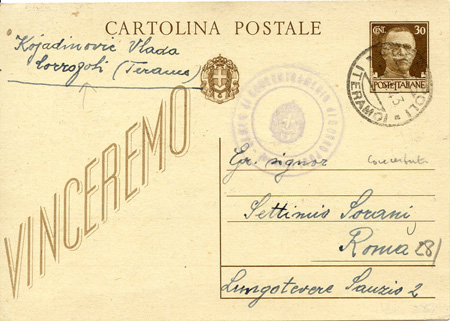 CARTOLINA POSTALE
CENT. 30
POSTE ITALIANE
Kojadinovic Vlada
Corropoli (Teramo)
(TERAMO)
VINCEREMO
Egr. signor
Settimio Sorani
Roma (28)
Lungotevere Sanzio 2